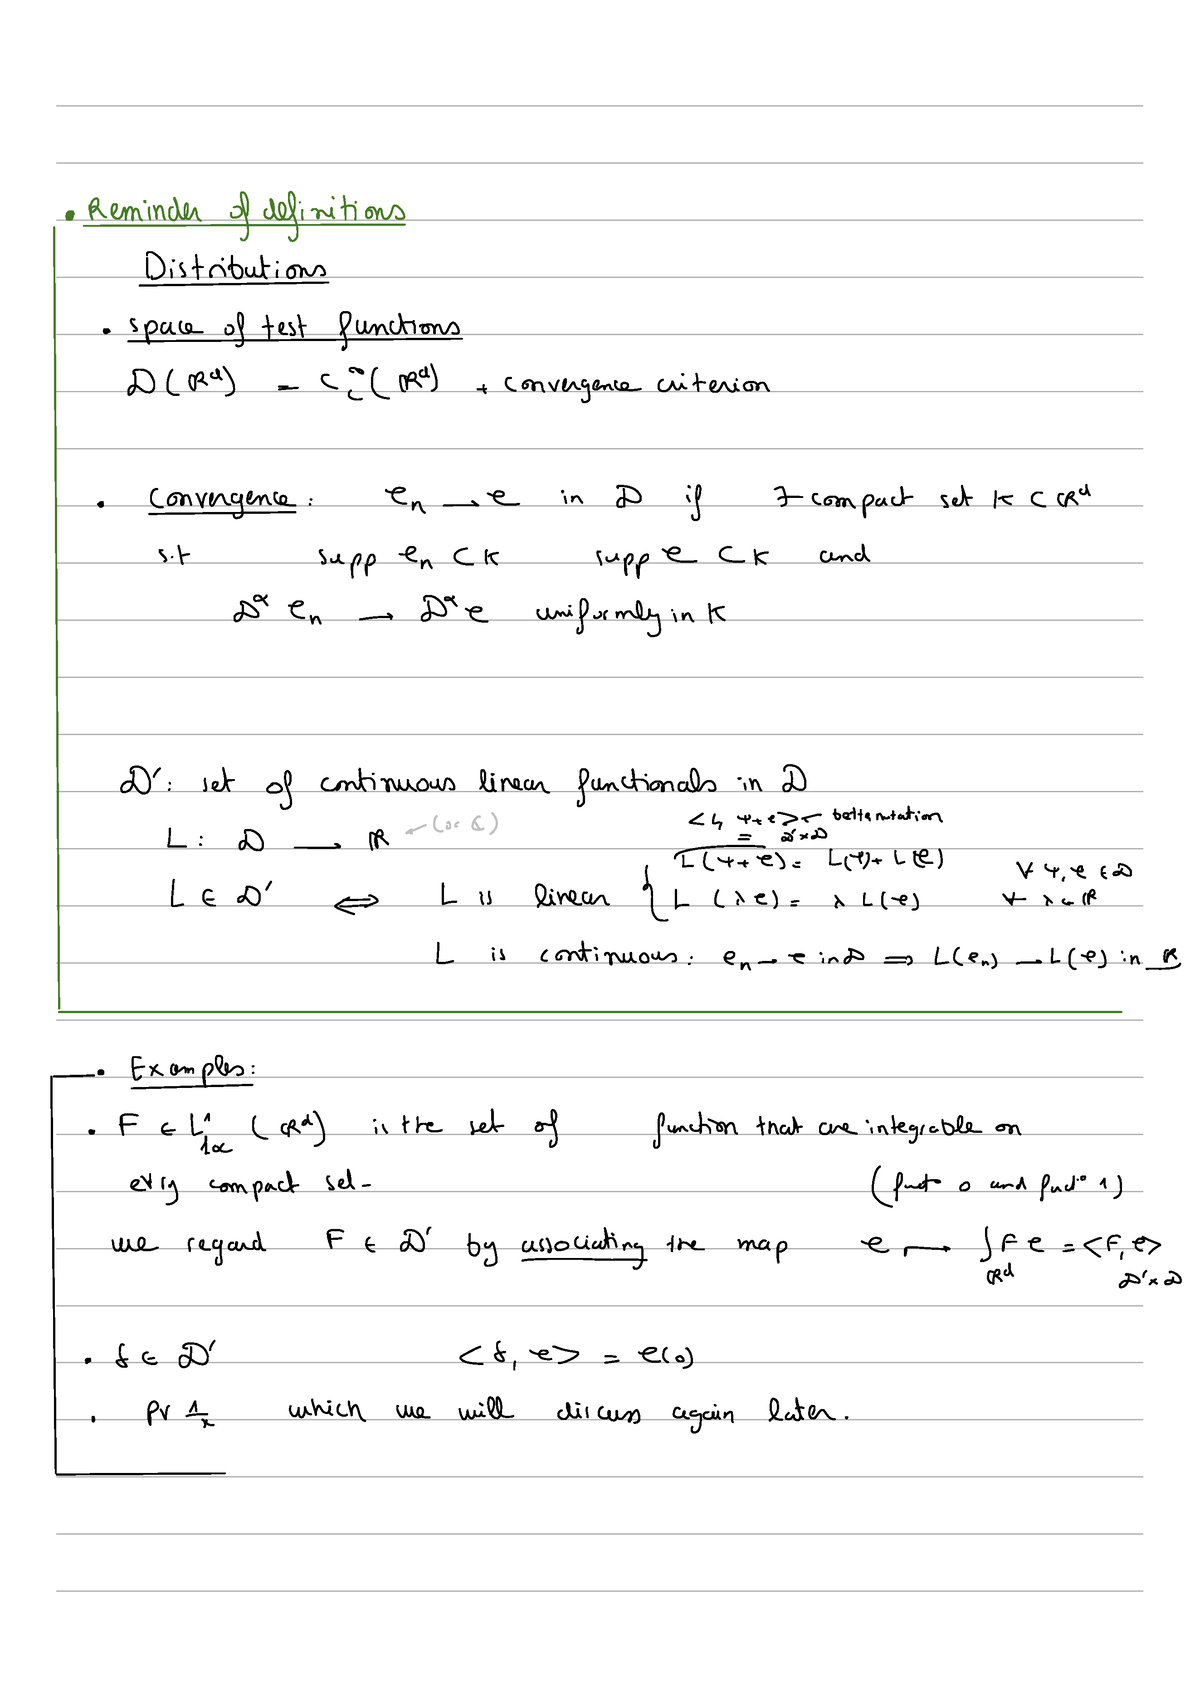 • Reminder of definitions
Distributions
• space of test functions
D(ℝᵈ) = C_c^∞(ℝᵈ) + convergence criterion
• Convergence: φₙ → φ in D if ∃ compact set K ⊂ ℝᵈ
s.t supp φₙ ⊂ K supp φ ⊂ K and
D^α φₙ → D^α φ uniformly in K
D': set of continuous linear functionals in D
<L, ψ+φ>_{D'×D} ← better notation
L: D → ℝ ← (or ℂ)
= L(ψ+φ) = L(ψ)+ L(φ) ∀ ψ, φ ∈ D
L ∈ D' ⇔ L is linear { L(λφ) = λ L(φ) ∀ λ ∈ ℝ
L is continuous: φₙ → φ in D ⇒ L(φₙ) → L(φ) in ℝ
• Examples:
• F ∈ L¹_loc (ℝᵈ) is the set of function that are integrable on
every compact set - (funct° 0 and funct° 1)
we regard F ∈ D' by associating the map φ ↦ ∫_{ℝᵈ} F φ = <F, φ>_{D'×D}
• δ ∈ D' <δ, φ> = φ(0)
• PV 1/x which we will discuss again later.